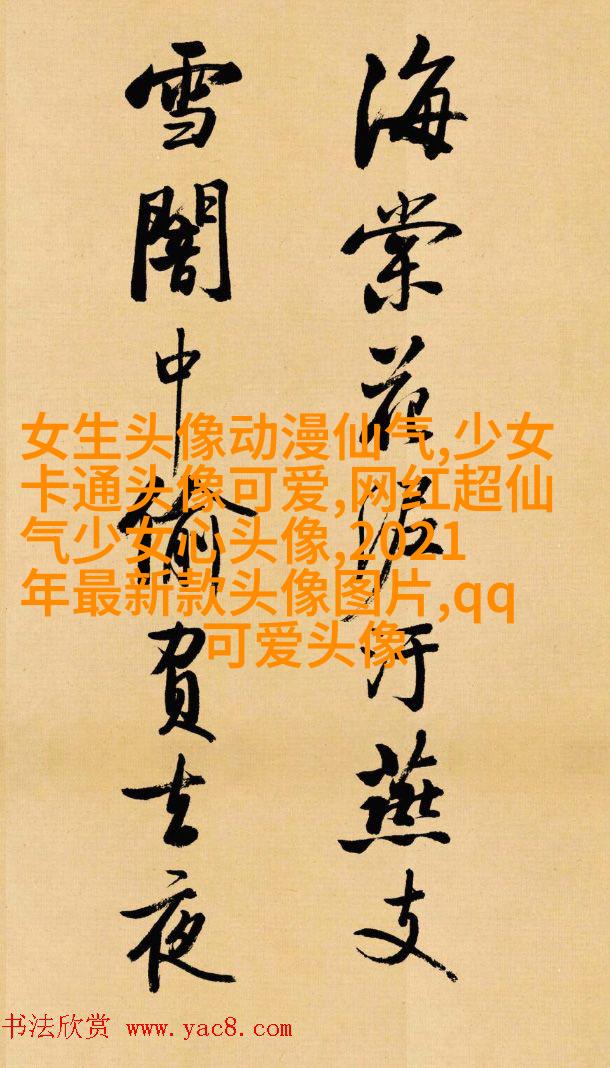 海棠花泥汙燕支
雪闇中偷負去夜
女生头像动漫仙气,少女
卡通头像可爱,网红超仙
气少女心头像,2021
年最新款头像图片,qq
可爱头像
书法欣赏 www.yac8.com